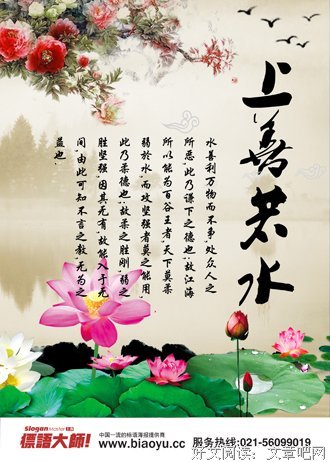 上善若水
水善利万物而不争,处众人之
所恶,此乃谦下之德也;故江海
所以能为百谷王者,天下莫柔
弱於水,而攻坚强者莫之能用,
此乃柔德也;故柔之胜刚,弱之
胜坚强,因其无有,故能入于无
间,由此可知不言之教,无为之
益也.
Slogan Master
標語大師!
中国一流的标语海报提供商
www.biaoyu.cc
服务热线:021-56099019
好文阅读:文章吧网